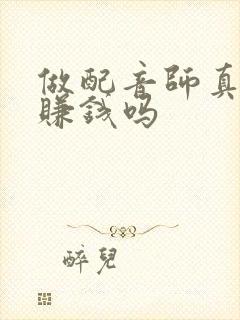 做配音师真
賺錢吗
醉兒